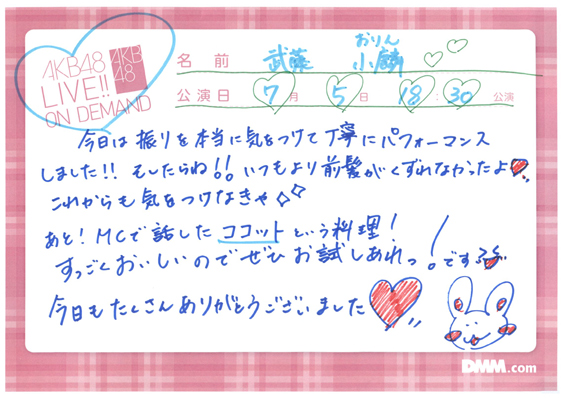 AKB48
LIVE!!
ON DEMAND
AKB
48
名前 武藤 小麟
おりん
公演日 7月 5日 18:30 公演
今日は振りを本当に気をつけて丁寧にパフォーマンス
しました!! そしたらね!! いつもより前髪がくずれなかったよ
これからも気をつけなきゃ
あと! MCで話したココットという料理!
すっごくおいしいのでぜひお試しあれっ!です
今日もたくさんありがとうございました
DMM.com